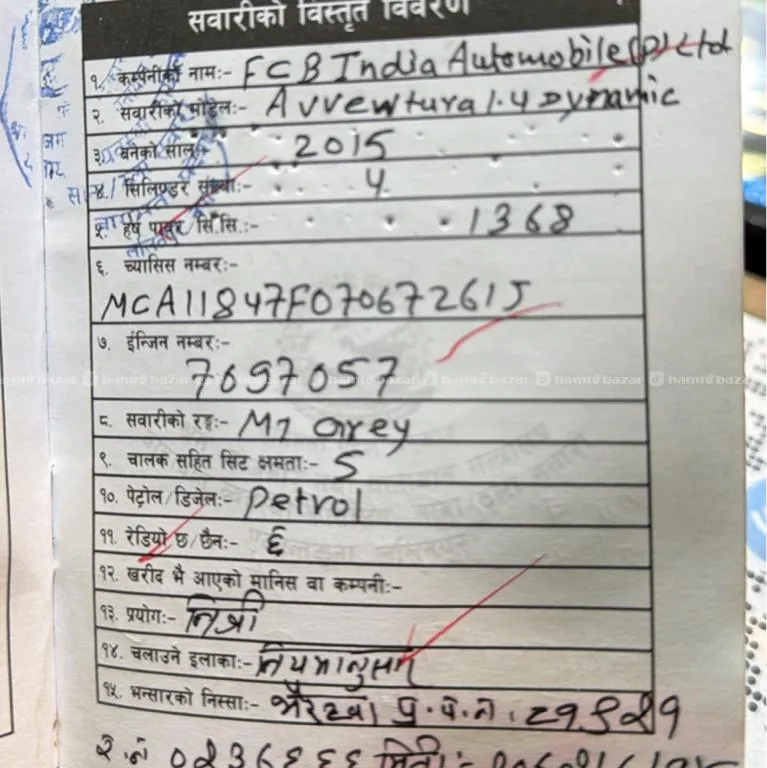 सवारीको विस्तृत विवरण
१. कम्पनीको नाम:- FCB India Automobile (P) Ltd
२. सवारीको मोडेल:- Avventura 1.4 Dynamic
३. बनेको साल 2015
४. सिलिण्डर संख्या:- 4
५. हर्ष पावर/सि.सि.:- 1368
६. च्यासिस नम्बर:-
MCA11847F07067261J
७. ईन्जिन नम्बर:-
7697057
८. सवारीको रङ्ग:- M7 Grey
९. चालक सहित सिट क्षमता:- 5
१०. पेट्रोल/डिजेल:- Petrol
११. रेडियो छ/छैन:-
१२. खरीद भै आएको मानिस वा कम्पनी:-
१३. प्रयोग:- निजी
१४. चलाउने इलाका:- नियमानुसार
१५. भन्सारको निस्सा:- भैरहवा प्र.प.न.
hamrobazar hamrobazar hamrobazar hamrobazar